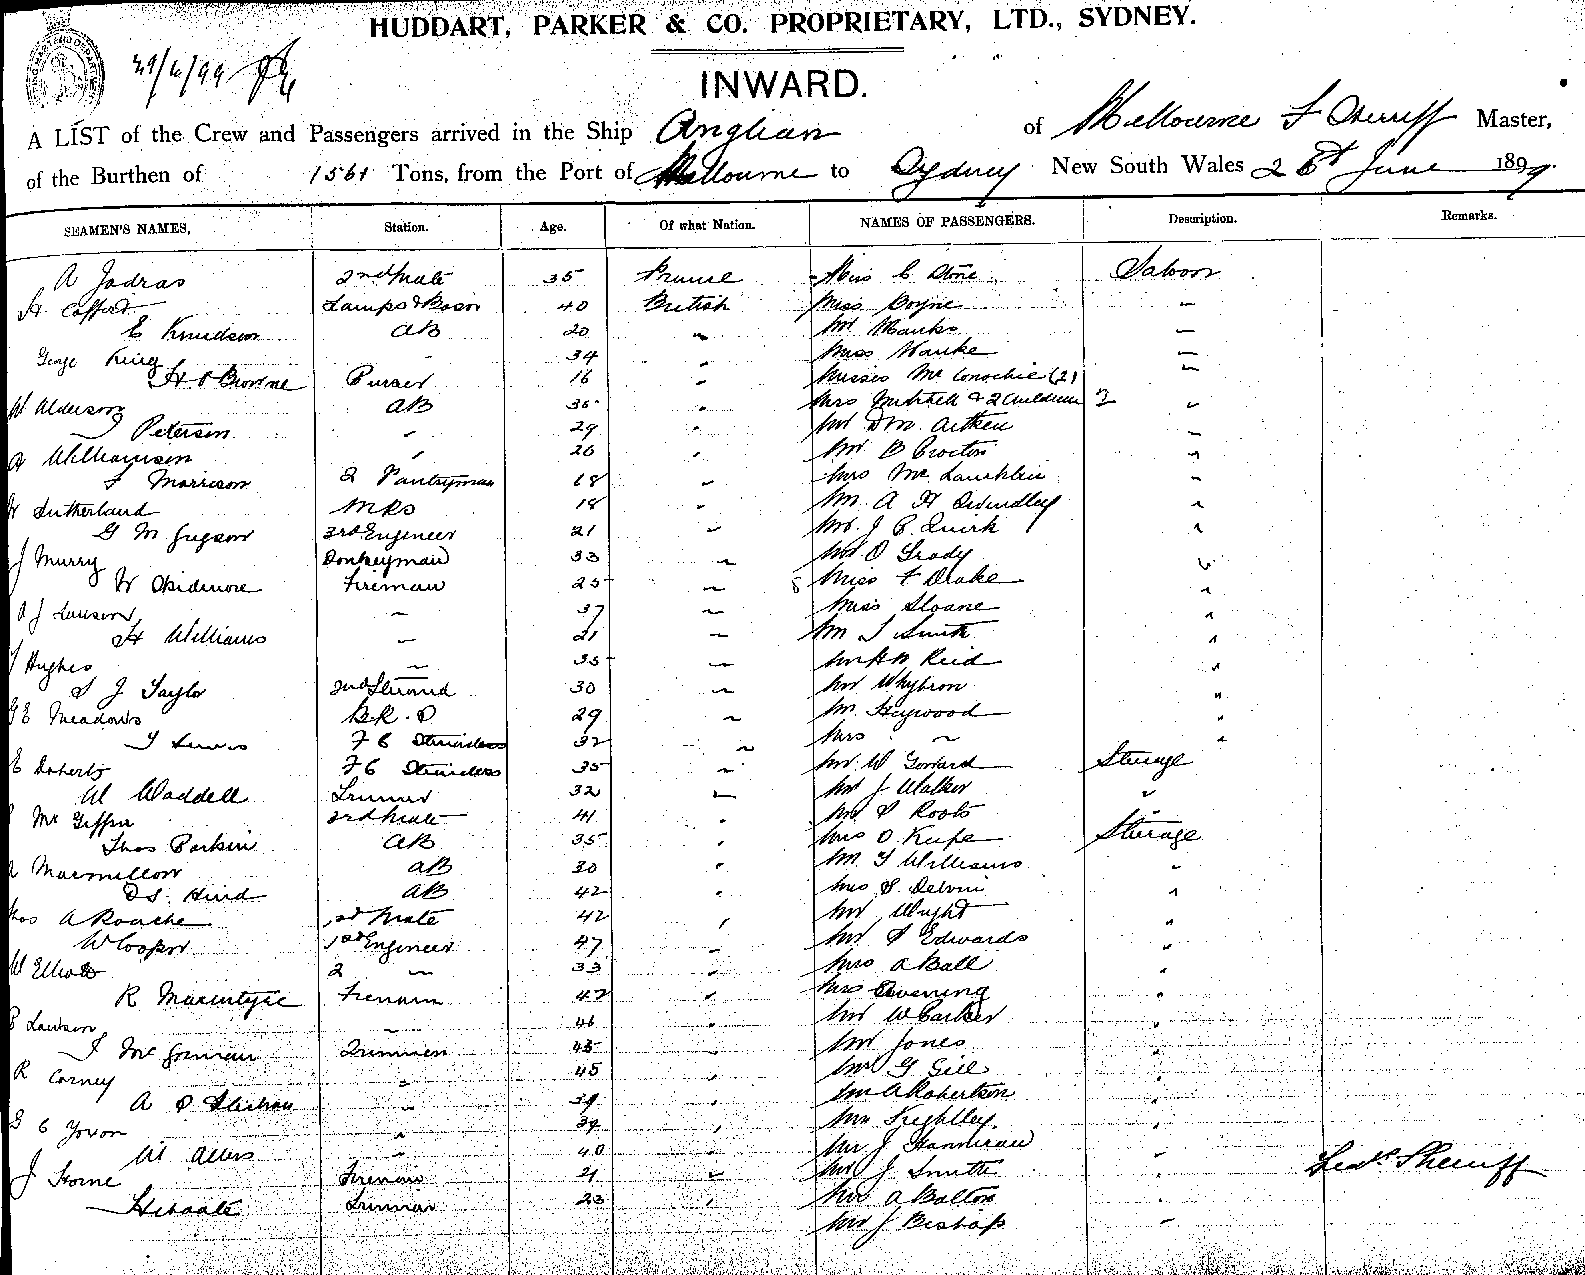 HUDDART, PARKER & CO. PROPRIETARY, LTD., SYDNEY.
29/6/99
INWARD.
A LIST of the Crew and Passengers arrived in the Ship Anglian of Melbourne F Sherriff Master,
of the Burthen of 1561 Tons, from the Port of Melbourne to Sydney New South Wales 26th June 1899.
SEAMEN'S NAMES, Station. Age. Of what Nation. NAMES OF PASSENGERS. Description. Remarks.
A Jadras 2nd Mate 35 Miss C Stone Saloon
Lamps & Bosn 40 British Miss Boyne —
E Knudson AB 20 " Mr Manks —
George King " 34 " Miss —
H P Browne Purser 16 " Misses McConochie (2) "
W Alderson AB 35 " Mrs Mitchell & 2 Children 3 "
Petersen " 29 " Mr D M Aitken "
A Williamson " 26 " Mr B Crocton "
F Morrison 2 Pantryman 18 " Mrs McLauchlin "
H Sutherland MRS 18 " Mr A H "
G M Gregson 3rd Engineer 21 " Mr J P Quirk "
J Murry Donkeyman 33 " Mr O Grady "
W Skidmore Fireman 25 " Miss F Drake "
A J Lawson " 37 " Miss Sloane "
H Williams " 21 " Mr T Smith "
T Hughes " 35 " Mr H W Reid "
S J Taylor 2nd Steward 30 " Mr Whybron "
G E Meadows B.R.S 29 " Mr Haywood "
T Lewis F C Stewardess 32 " Mrs " "
E Doherty F C Stewardess 35 " Mr W Goward Steerage
W Waddell Trimmer 32 " Mr J Walker "
McGiffin 3rd Mate 41 " Mr S Roots
Thos Parkin AB 35 " Mrs O Keefe Steerage
A Macmillan AB 30 " Mr T Williams "
D S Hird AB 42 " Mrs S "
Thos A Roache 1st Mate 42 " Mr Wright "
W Cooper 1st Engineer 47 " Mr S Edwards "
W Elliott 2 " 33 " Mrs A Ball "
R Macintyre Fireman 42 " Mrs Evening "
P Lawson " 46 " Mr W Barker "
J McGorman Trimmer 45 " Mr Jones "
R Corney " 45 " Mr G Gill "
A P " 39 " Mr A Robertson "
G C " 39 " Mr Keightley "
W Allers " 40 " Mr J "
J Horne Fireman 21 " Mr J Smith " Sherriff
Trimmer 23 " Mr A Bolton "
Mr J Bishop "